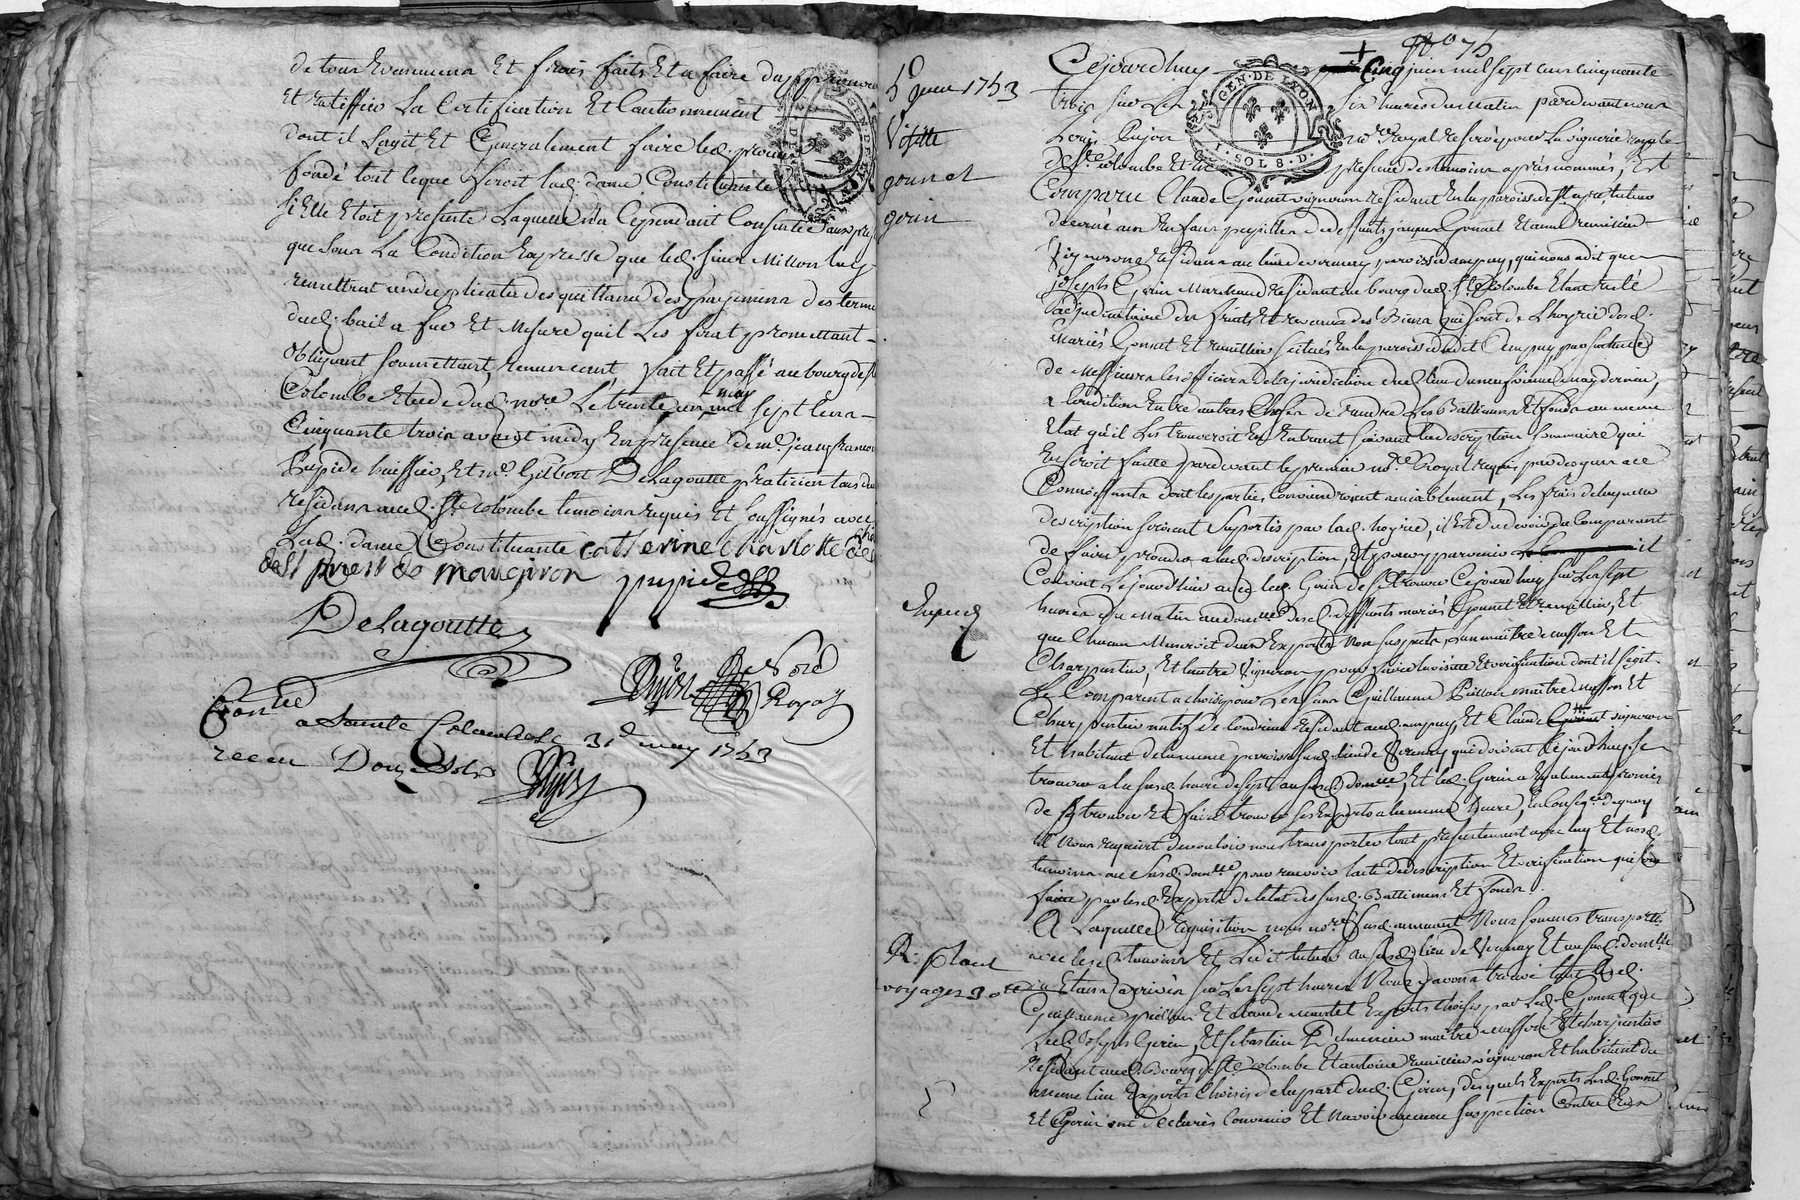 de tous Evenemens Et frais faits Et a faire d'approuver
Et ratiffier La Certification Et Cautionnement
dont il Sagit Et Generalement faire led. procureur
fondé tout ce que feroit lad. dame Constituante
si Elle Etoit presente Laquelle n'a Cependant Consentie aux pre
que sous La Condition Expresse que led. sieur Millon luy
remettrat un duplicata des quittances des payemens des termes
dud. bail a fur Et Mesure quil Les ferat promettant
obligeant soumettant, renonceant fait Et passé au bourg de Ste
Colombe Etude dud. nore. Le trente un may mil sept Cens
Cinquante trois avant midy En presence de me. jean francois
Pupide huissier, Et me. Gilbert Delagoutte praticien tous deux
residans aud. Ste Colombe temoins requis Et soussignés avec
Lad. dame Constituante Catherine Charlotte de
de maugiron pupide
Delagoutte
Dujon Nore
Royal
Contlé
a Sainte Colombe le 31e may 1753
receu Douze Sols
Dujon
No 75
5e juin 1753
Visitte
gonnet
gerin
GEN. DE LYON
1. SOL 8. D.
Cejourdhuy Cinq juin mil sept cens cinquante
trois sur Les Six heures du matin pardevant nous
Louis Dujon nore Royal reservé pour La seignerie royale
de Ste Colombe Et presence des temoins aprés nommés, Est
Comparu Claude Gonnet vigneron residant En la paroisse de tuteur
decerné aux Enfans pupilles de deffunts jacques Gonnet Et anne remillier
Vignerons residans au lieu de verenay, paroisse dampuy, qui nous a dit que
Joseph Gerin Marchand residant au bourg dud. Ste Colombe Etant resté
adjudicataire des fruits Et revenus des Biens qui sont de L'hoyrie desd.
Mariés Gonnet Et remillier situés En la paroisse dudit Ampuy, par sentence
de Messieurs les officiers de la jurisdiction dud. lieu du neufvieme may dernier,
a Condition Entre autres Choses de rendre Les Battimens Et fonds au meme
Etat qu'il Les trouveroit En Entrant suivant la description sommaire qui
En seroit faitte pardevant le premier nore Royal requis par des gens a ce
Connoissants dont les parties Conviendroient amiablement, Les frais de laquelle
description seroient suportés par lad. hoyrie, il Est du devoir du Comparant
de faire proceder a lad. description, Et pour y parvenir il
Convint avec led. Gerin de se trouver Cejourdhuy sur Les sept
heures du Matin au domlle desd. deffunts mariés Gonnet Et remillier, Et
que Chacun Meneroit deux Experts Non suspects, L'un maitre masson Et
Charpentier, Et L'autre Vigneron pour faire la visitte Et verification dont il s'agit
Le Comparant a choisi pour Les siens Guillaume Pithon maitre masson Et
Charpentier natif de residant aud. ampuy, Et Claude vigneron
Et habitant de la meme paroisse aud. lieu de Verenay qui doivent Cejourdhuy se
trouver a la susd. heure de sept au susd. domlle, Et led. Gerin a Egalement promis
de s'y trouver Et faire trouver ses Experts a la meme heure, En Conseqce de quoy
il Nous requiert de vouloir nous transporter tout presentement avec luy Et nosd.
temoins au susd. domlle pour recevoir l'acte de description Et verification qui sera
faitte par lesd. Experts de l'etat des susd. Battimens Et fonds.
A Laquelle requisition nous nore susd. annuant Nous sommes transportés
avec lesd. temoins Et Ledit tuteur au susd. lieu de Verenay Et au susd. domlle
ou Etans arrivés sur Les sept heures Nous y avons trouvé lesd.
Guillaume pithon Et Experts choisis par led. Gonnet que
Led. Joseph Gerin, Et Sebastien maitre masson Et charpentier
residant aud. Bourg de Ste Colombe Et antoine remillier vigneron Et habitant du
meme lieu Experts Choisis de la part dud. Gerin, desquels Experts Lesd. Gonnet
Et Gerin ont declarés Convenir Et n'avoir aucune suspection Contre Eux
Exped.
voyages 3